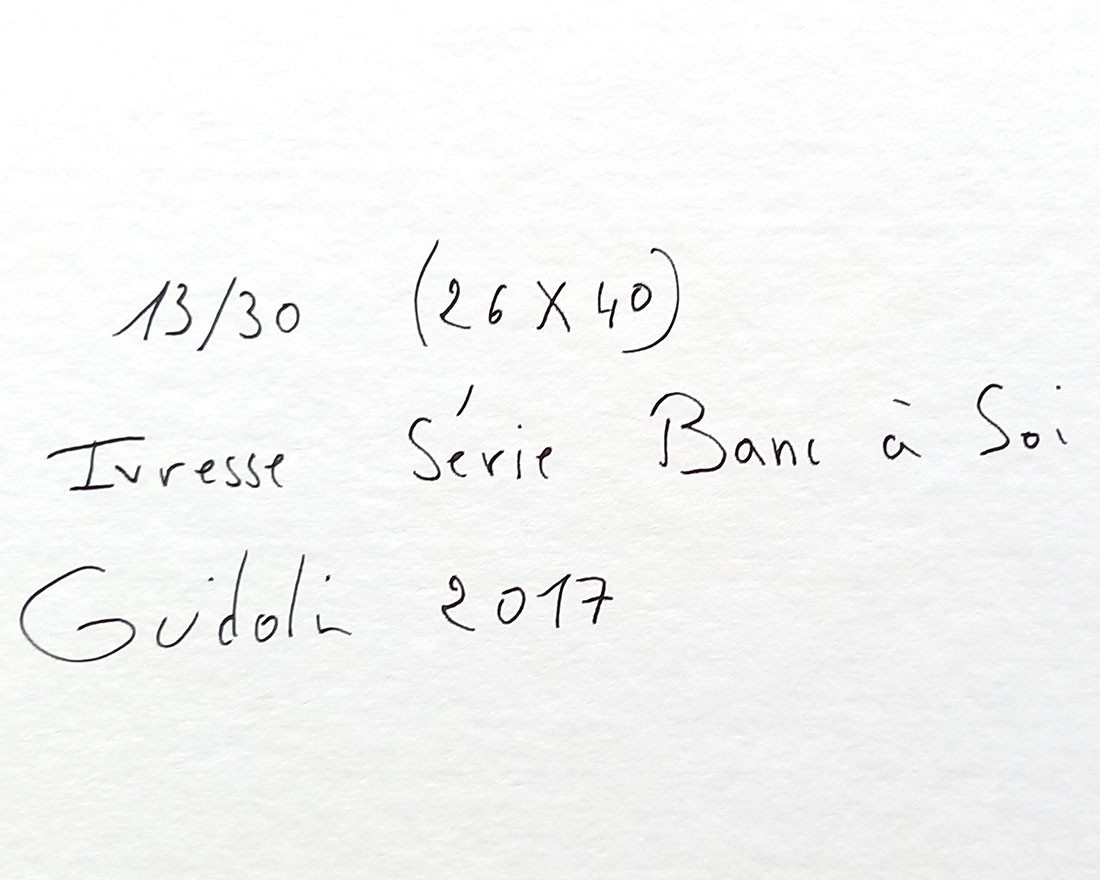 13/30 (26 X 40)
Ivresse Série Banc à Soi
Guidolin 2017